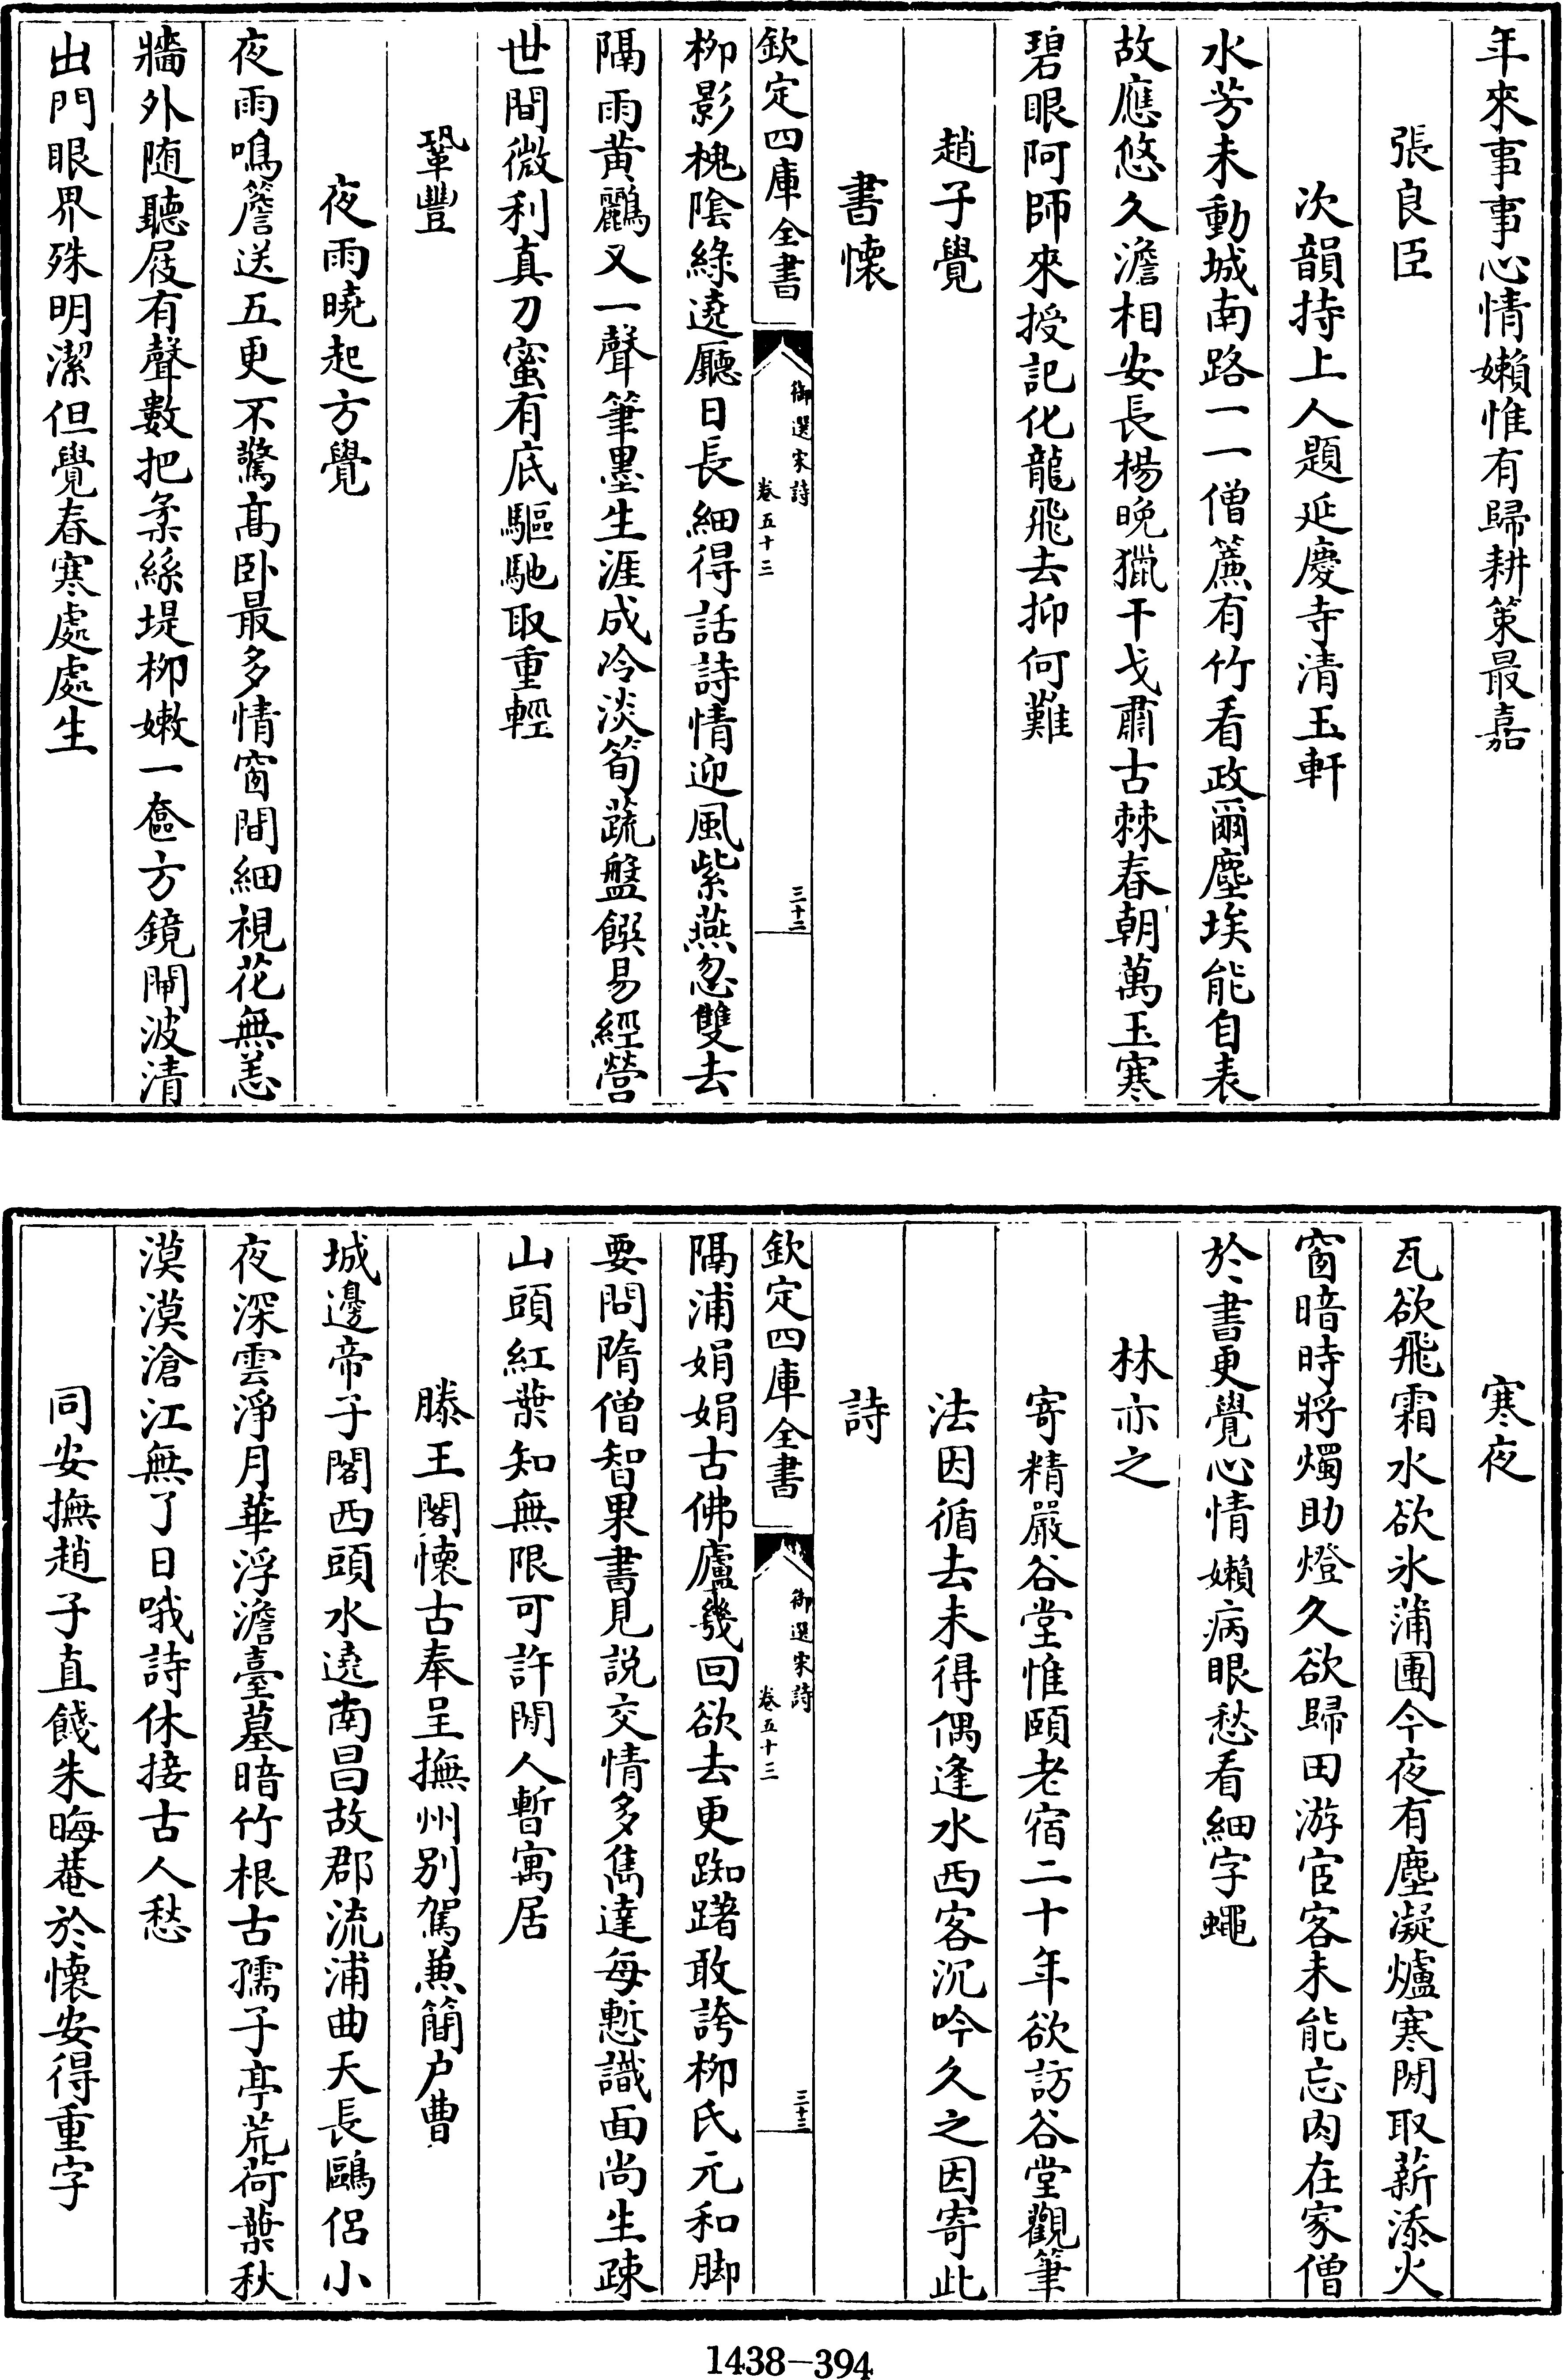 年來事事心情嬾惟有歸耕策最嘉
張良臣
次韻持上人題延慶寺清玉軒
水芳未動城南路一一僧簾有竹看政爾塵埃能自表
故應悠久澹相安長楊晚獵干戈肅古棘春朝萬玉寒
碧眼阿師來授記化龍飛去抑何難
趙子覺
書懷
欽定四庫全書
御選宋詩
卷五十三
三十二
柳影槐陰綠遶廳日長細得話詩情迎風紫燕忽雙去
隔雨黃鸝又一聲筆墨生涯成冷淡筍蔬盤饌易經營
世間微利真刀蜜有底驅馳取重輕
鞏豐
夜雨曉起方覺
夜雨鳴簷送五更不驚高卧最多情窗間細視花無恙
牆外随聽屐有聲數把柔絲堤柳嫩一奩方鏡閘波清
出門眼界殊明潔但覺春寒處處生
寒夜
瓦欲飛霜水欲氷蒲團今夜有塵凝爐寒閒取薪添火
窗暗時將燭助燈久欲歸田游宦客未能忘肉在家僧
於書更覺心情嬾病眼愁看細字蠅
林亦之
寄精嚴谷堂惟頤老宿二十年欲訪谷堂觀筆
法因循去未得偶逢水西客沉吟久之因寄此
詩
欽定四庫全書
御選宋詩
卷五十三
三十三
隔浦娟娟古佛廬幾回欲去更踟躇敢誇柳氏元和脚
要問隋僧智果書見説交情多雋達每慙識面尚生疎
山頭紅葉知無限可許閒人暫寓居
滕王閣懷古奉呈撫州別駕兼簡户曹
城邊帝子閣西頭水遶南昌故郡流浦曲天長鷗侶小
夜深雲淨月華浮澹臺墓暗竹根古孺子亭荒荷葉秋
漠漠滄江無了日哦詩休接古人愁
同安撫趙子直餞朱晦菴於懷安得重字
1438-394